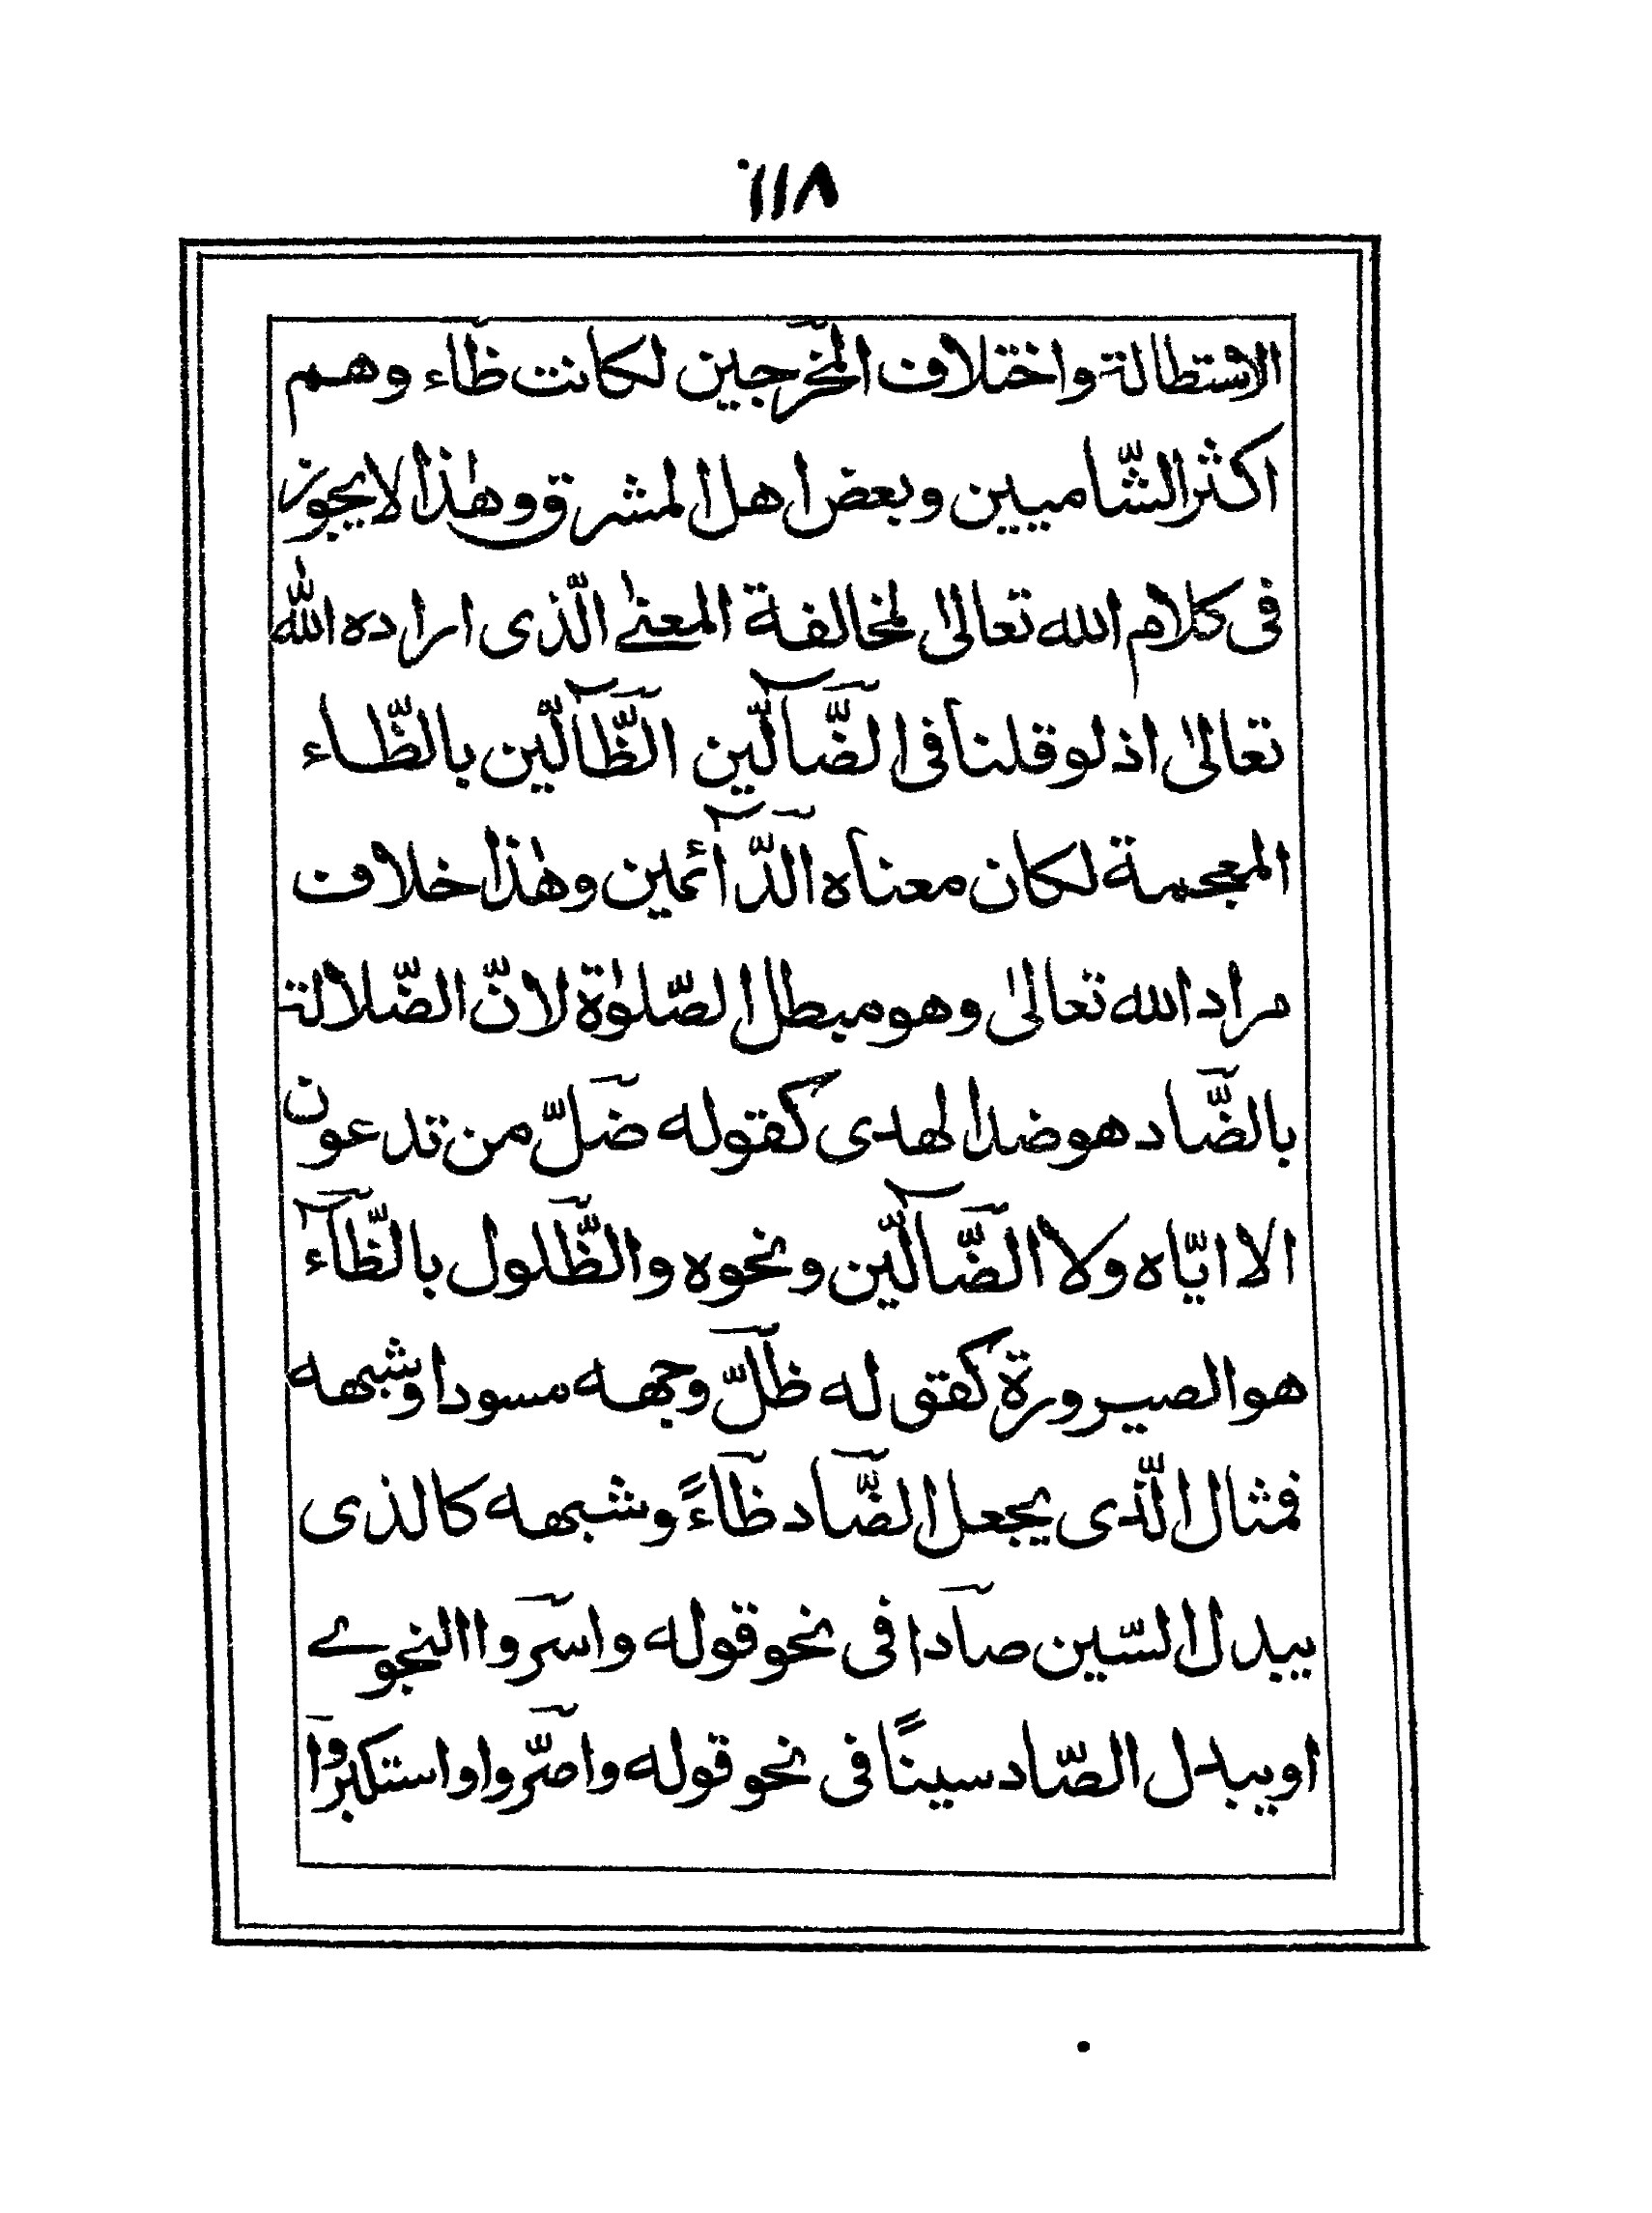 ١١٨
الاستطالة واختلاف المخرجين لكانت ظاء وهم
اكثر الشّاميين وبعض اهل المشرق وهٰذا لايجوز
فى كلام الله تعالىٰ لمخالفة المعنىٰ الّذى اراده الله
تعالىٰ اذ لو قلنا فى الضّآلّين الظّآلّين بالظّاء
المعجمة لكان معناه الدّآئمين وهٰذا خلاف
مراد الله تعالىٰ وهو مبطل الصّلوٰة لانّ الضّلالة
بالضّاد هو ضد الهدى كقوله ضلّ من تدعون
الا ايّاه ولا الضّآلّين ونحوه والظّلول بالظّآء
هو الصيرورة كقوله ظلّ وجهه مسودا وشبهه
فمثال الّذى يجعل الضّاد ظاءً وشبهه كالذى
يبدل السّين صادا فى نحو قوله واسروا النجوے
او يبدل الصّاد سينًا فى نحو قوله واصّروا واستكبروا